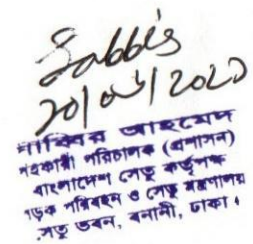 Sabbir
২০/০৬/২০২১
সাব্বির আহমেদ
সহকারী পরিচালক (প্রশাসন)
বাংলাদেশ সেতু কর্তৃপক্ষ
সড়ক পরিবহন ও সেতু মন্ত্রণালয়
সেতু ভবন, বনানী, ঢাকা।